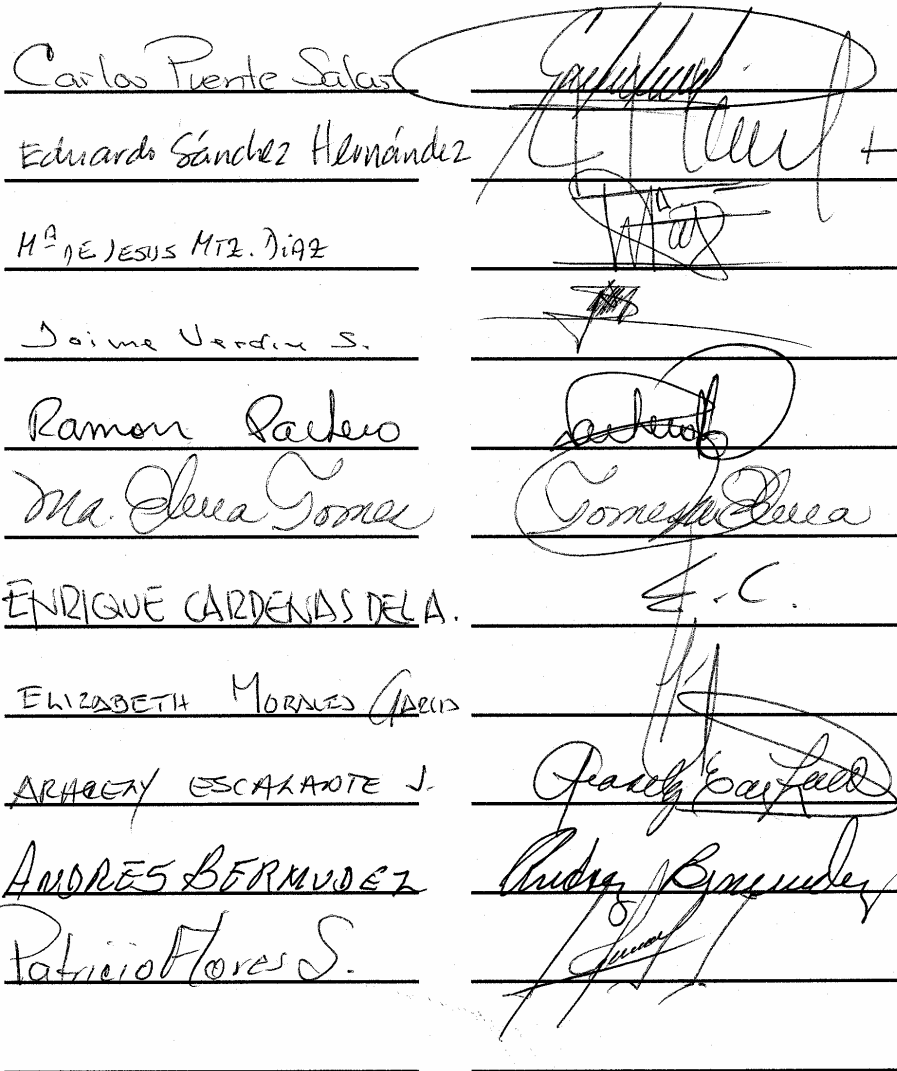 Carlos Puente Salas
Eduardo Sánchez Hernández
Mª DE JESUS MTZ. DiAZ
Jaime Verdin S.
Ramon Pacheco
Ma. Elena Tomes Tomes Elena
ENRIQUE CARDENAS DEL A. E.C.
ELIZABETH MORALES GARCIA
ARACELY ESCALANTE J. Aracely Escalante
ANDRES BERMUDEZ Andres Bermudez
Patricio Flores S.